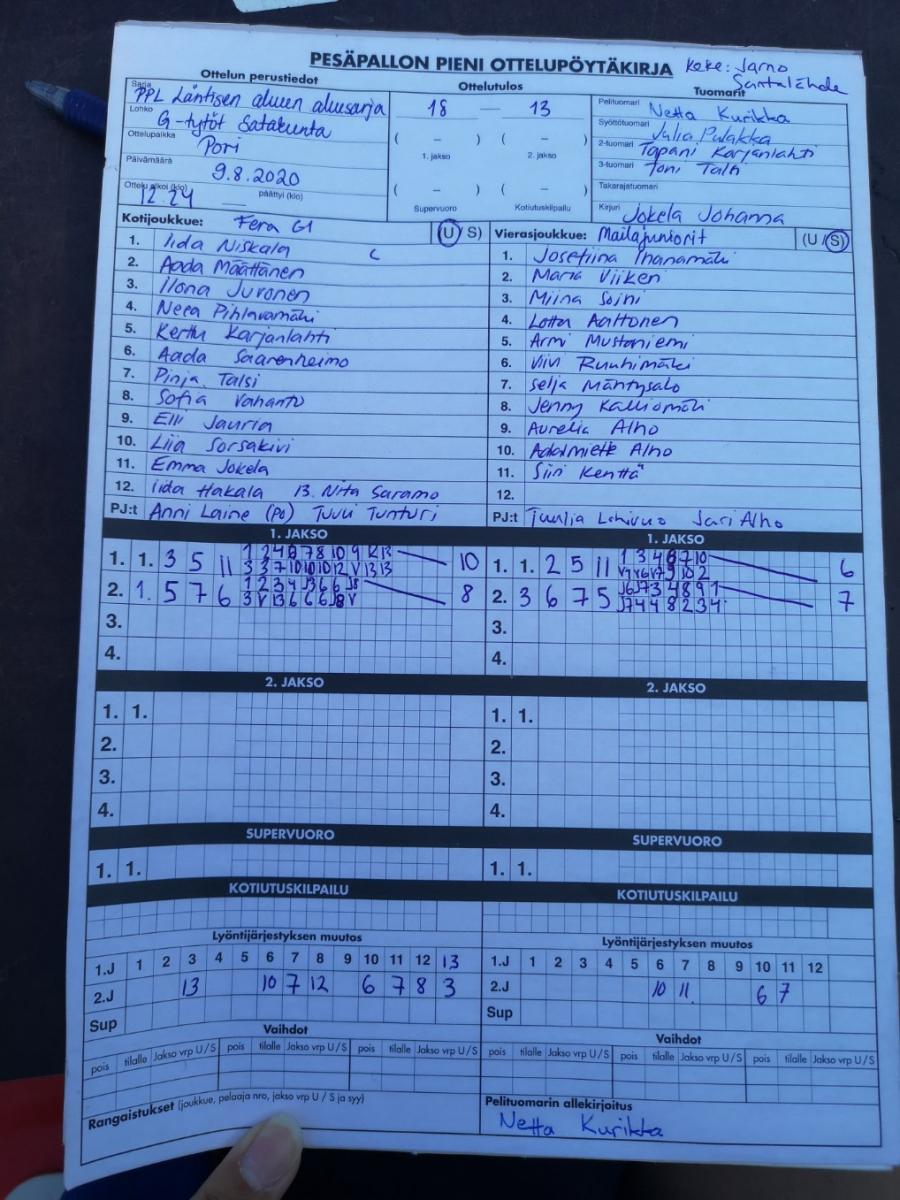 PESÄPALLON PIENI OTTELUPÖYTÄKIRJA
Keke: Jarno Santalahde
Ottelun perustiedot
Sarja PPL Läntisen alueen aluesarja
Lohko G-tytöt Satakunta
Ottelupaikka Pori
Päivämäärä 9.8.2020
Ottelu alkoi (klo) 12.24 päättyi (klo)
Ottelutulos
18 — 13
( – ) ( – )
1. jakso 2. jakso
( – ) ( – )
Supervuoro Kotiutuskilpailu
Tuomarit
Pelituomari Netta Kurikka
Syöttötuomari Julia Pulakka
2-tuomari Tapani Karjanlahti
3-tuomari Toni Talsi
Takarajatuomari
Kirjuri Jokela Johanna
Kotijoukkue: Fera G1 (U / S)
1. Iida Niskala C
2. Aada Määttänen
3. Ilona Juvonen
4. Neea Pihlavamäki
5. Kerttu Karjanlahti
6. Aada Saarenheimo
7. Pinja Talsi
8. Sofia Vahanto
9. Elli Jauria
10. Liia Sorsakivi
11. Emma Jokela
12. Iida Hakala 13. Nita Saramo
PJ:t Anni Laine (PO) Tuuli Tunturi
Vierasjoukkue: Mailajuniorit (U / S)
1. Josefiina Ihanamäki
2. Maria Viikeri
3. Miina Soini
4. Lotta Aaltonen
5. Armi Mustaniemi
6. Viivi Ruuhimäki
7. Selja Mäntysalo
8. Jenny Kalliomäki
9. Aurelia Alho
10. Alho
11. Siiri Kenttä
12.
PJ:t Tuulia Sari Alho
1. JAKSO
1. 1. 3 5 11 10
2. 1. 5 7 6 8
3.
4.
1. JAKSO
1. 1. 2 5 11 6
2. 3 6 7 5 7
3.
4.
2. JAKSO
1. 1.
2.
3.
4.
2. JAKSO
1. 1.
2.
3.
4.
SUPERVUORO
1. 1.
SUPERVUORO
1. 1.
KOTIUTUSKILPAILU
KOTIUTUSKILPAILU
Lyöntijärjestyksen muutos
1.J 1 2 3 4 5 6 7 8 9 10 11 12 13
2.J 13 10 7 12 6 7 8 3
Sup
Lyöntijärjestyksen muutos
1.J 1 2 3 4 5 6 7 8 9 10 11 12
2.J 10 11 6 7
Sup
Vaihdot
pois tilalle Jakso vrp U / S pois tilalle Jakso vrp U / S pois tilalle Jakso vrp U / S
Vaihdot
pois tilalle Jakso vrp U / S pois tilalle Jakso vrp U / S pois tilalle Jakso vrp U / S
Rangaistukset (joukkue, pelaaja nro, jakso vrp U / S ja syy)
Pelituomarin allekirjoitus
Netta Kurikka